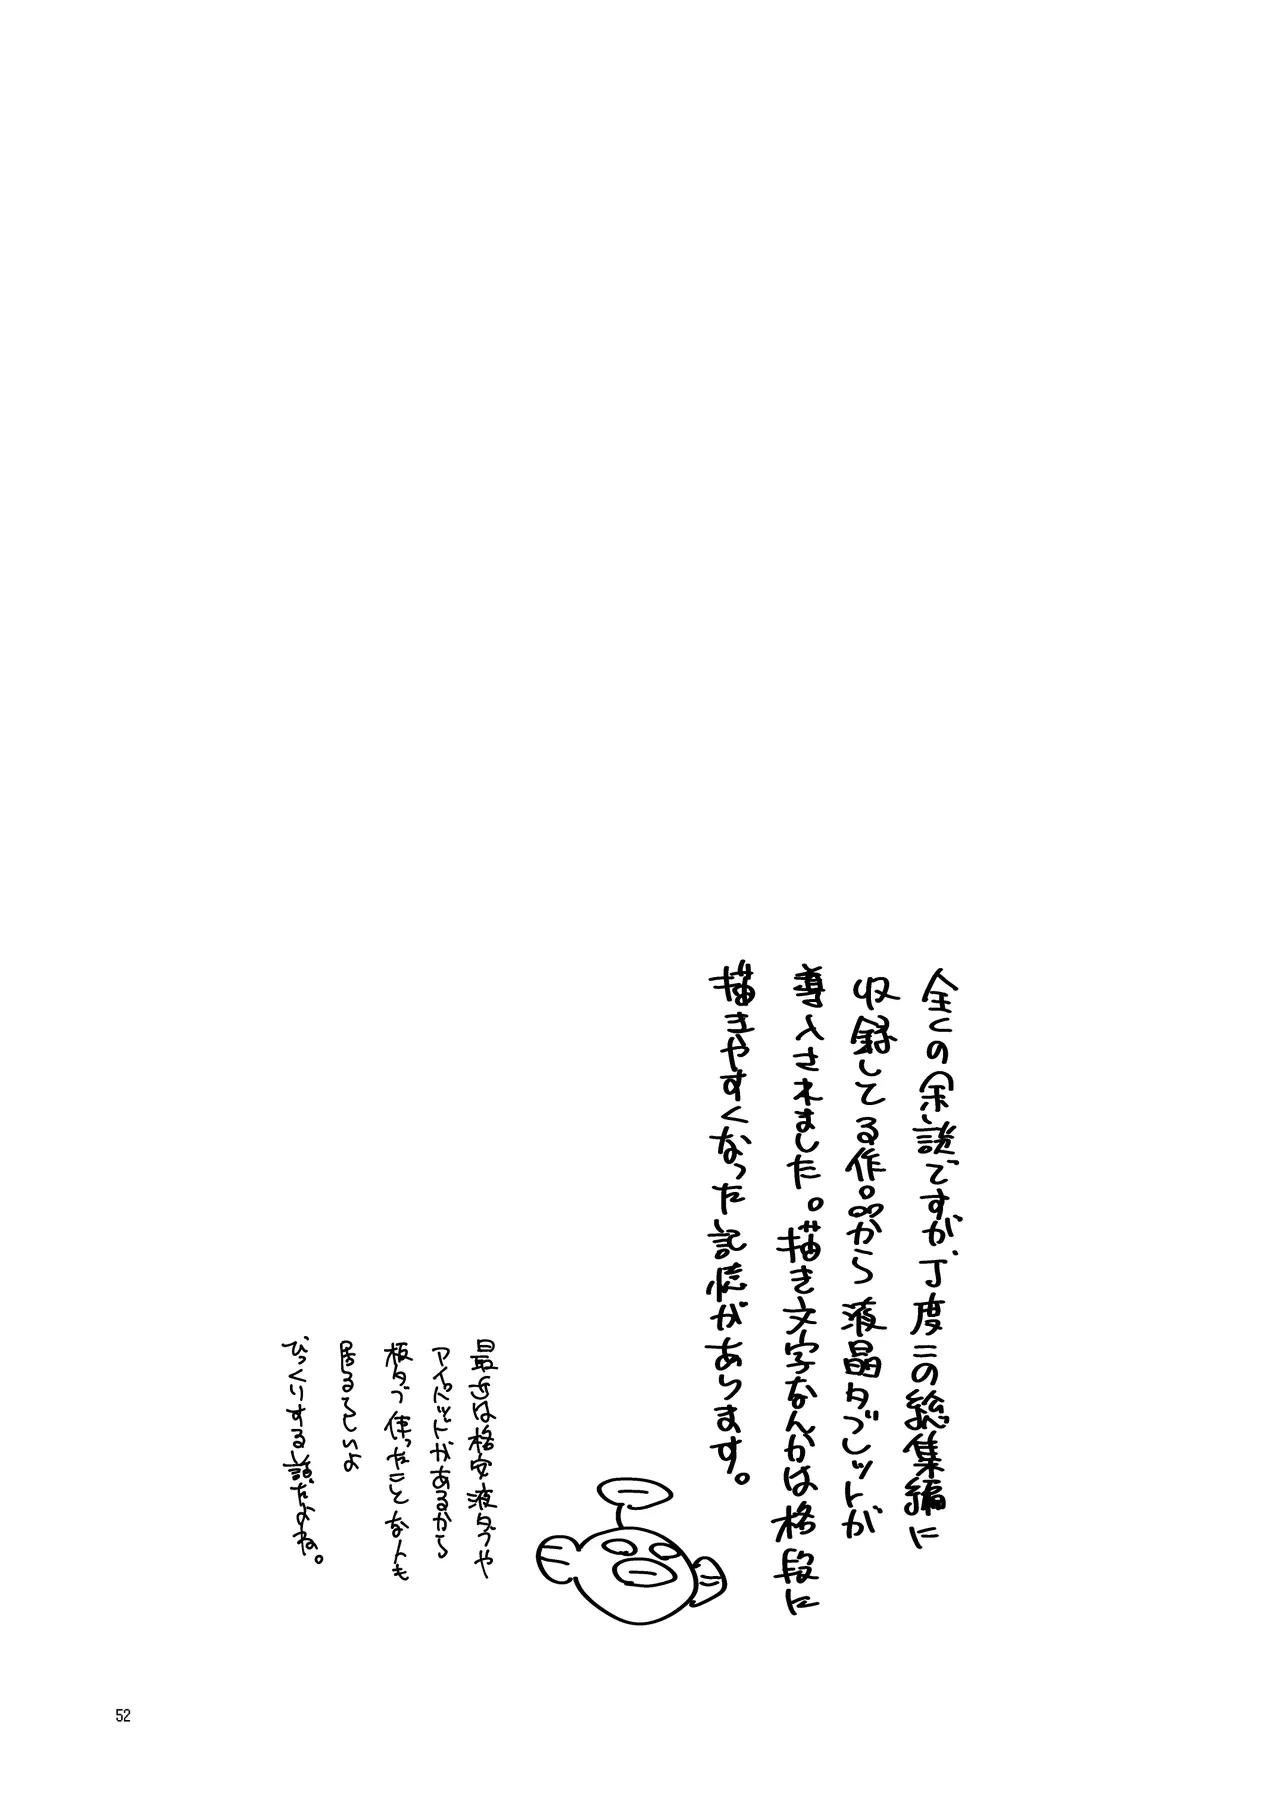 全くの余談ですが、丁度この総集編に
収録してる作品から液晶タブレットが
導入されました。描き文字なんかは格段に
描きやすくなった記憶があります。
最近は格安液タブや
アイパッドがあるから
板タブ使ったことなんも
居るらしいよ
びっくりする話だよね。
52